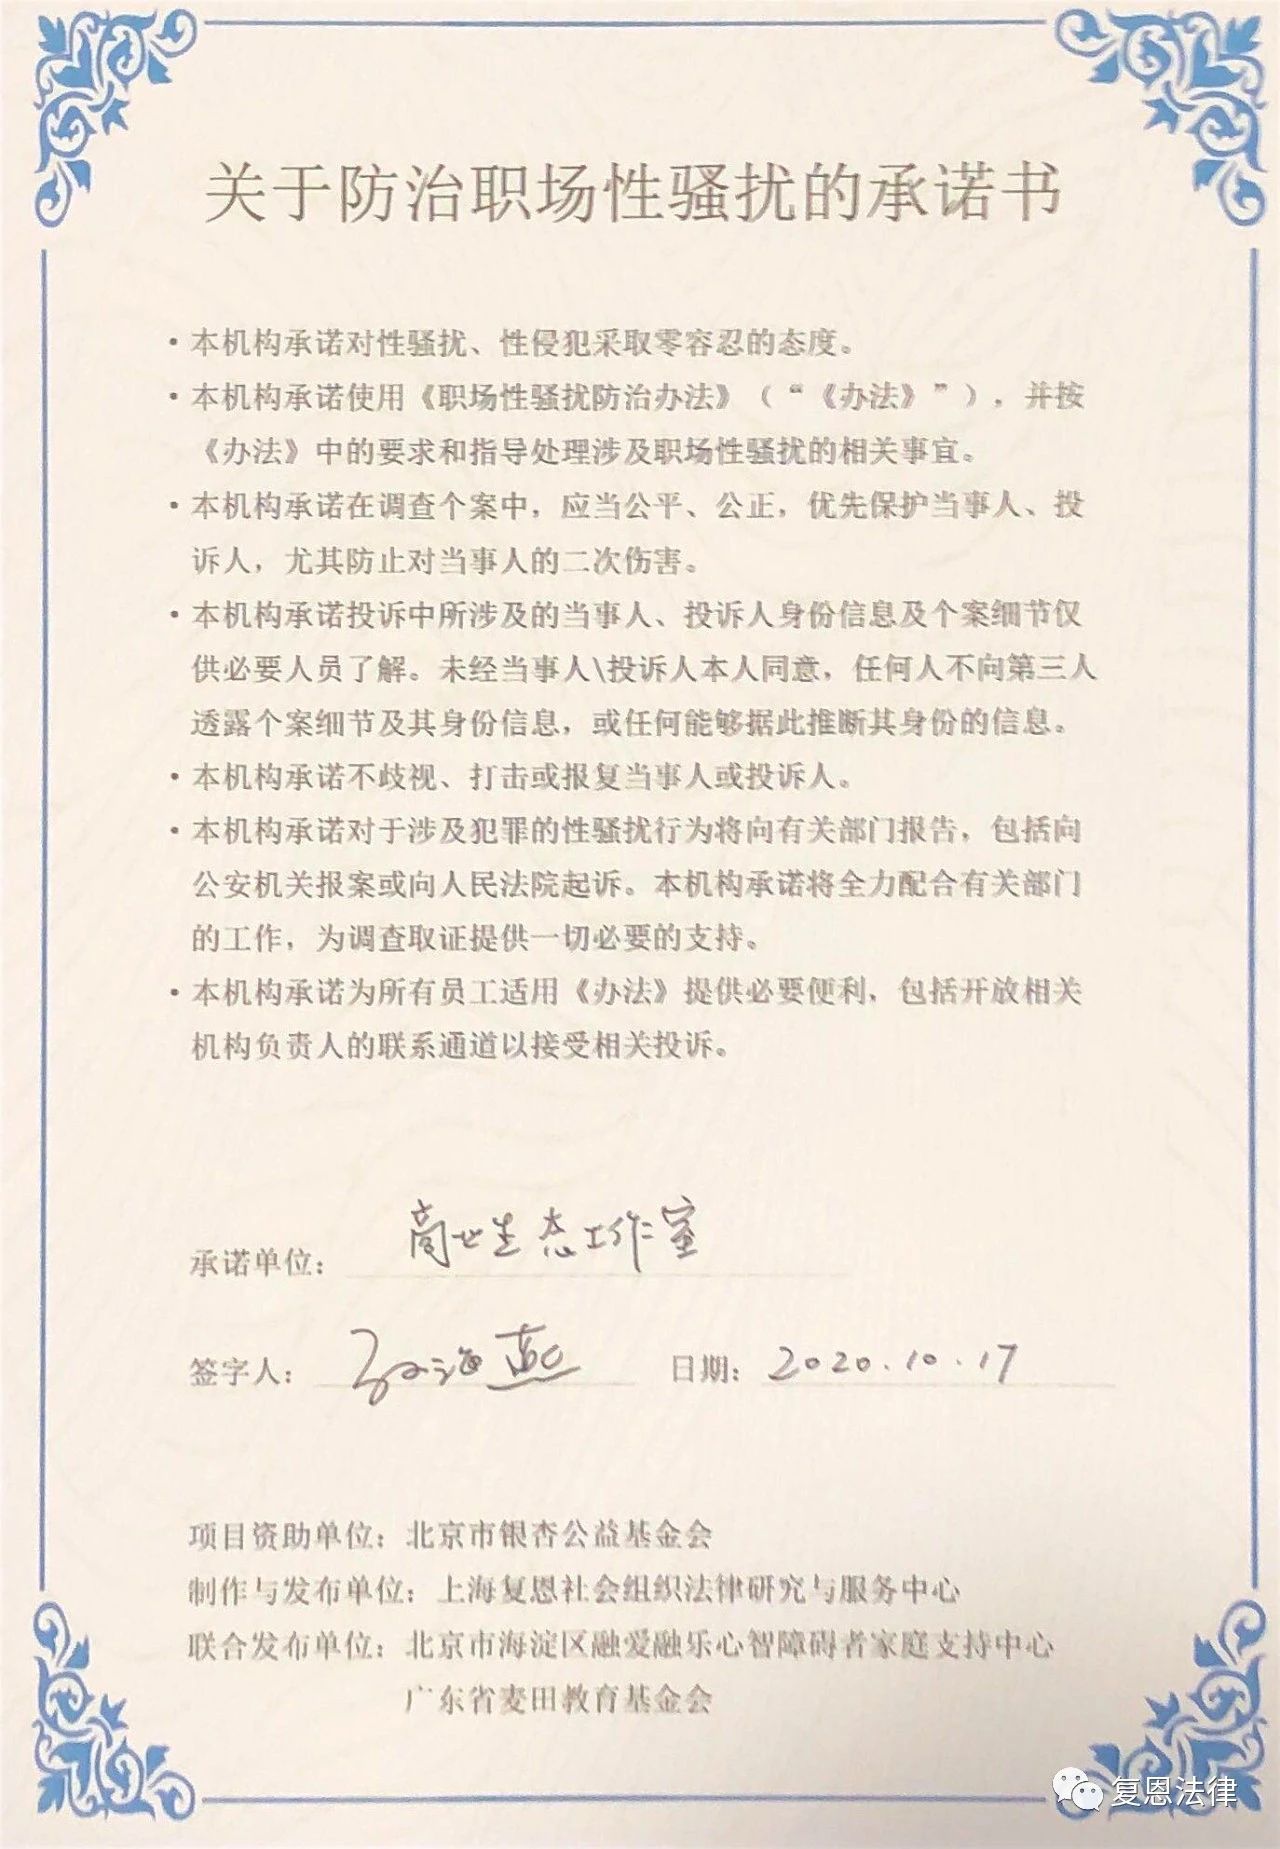 关于防治职场性骚扰的承诺书
·本机构承诺对性骚扰、性侵犯采取零容忍的态度。
·本机构承诺使用《职场性骚扰防治办法》（“《办法》”），并按
《办法》中的要求和指导处理涉及职场性骚扰的相关事宜。
·本机构承诺在调查个案中，应当公平、公正，优先保护当事人、投
诉人，尤其防止对当事人的二次伤害。
·本机构承诺投诉中所涉及的当事人、投诉人身份信息及个案细节仅
供必要人员了解。未经当事人\投诉人本人同意，任何人不向第三人
透露个案细节及其身份信息，或任何能够据此推断其身份的信息。
·本机构承诺不歧视、打击或报复当事人或投诉人。
·本机构承诺对于涉及犯罪的性骚扰行为将向有关部门报告，包括向
公安机关报案或向人民法院起诉。本机构承诺将全力配合有关部门
的工作，为调查取证提供一切必要的支持。
·本机构承诺为所有员工适用《办法》提供必要便利，包括开放相关
机构负责人的联系通道以接受相关投诉。
承诺单位：生态工作室
签字人：海燕 日期：2020.10.17
项目资助单位：北京市银杏公益基金会
制作与发布单位：上海复恩社会组织法律研究与服务中心
联合发布单位：北京市海淀区融爱融乐心智障碍者家庭支持中心
广东省麦田教育基金会
复恩法律